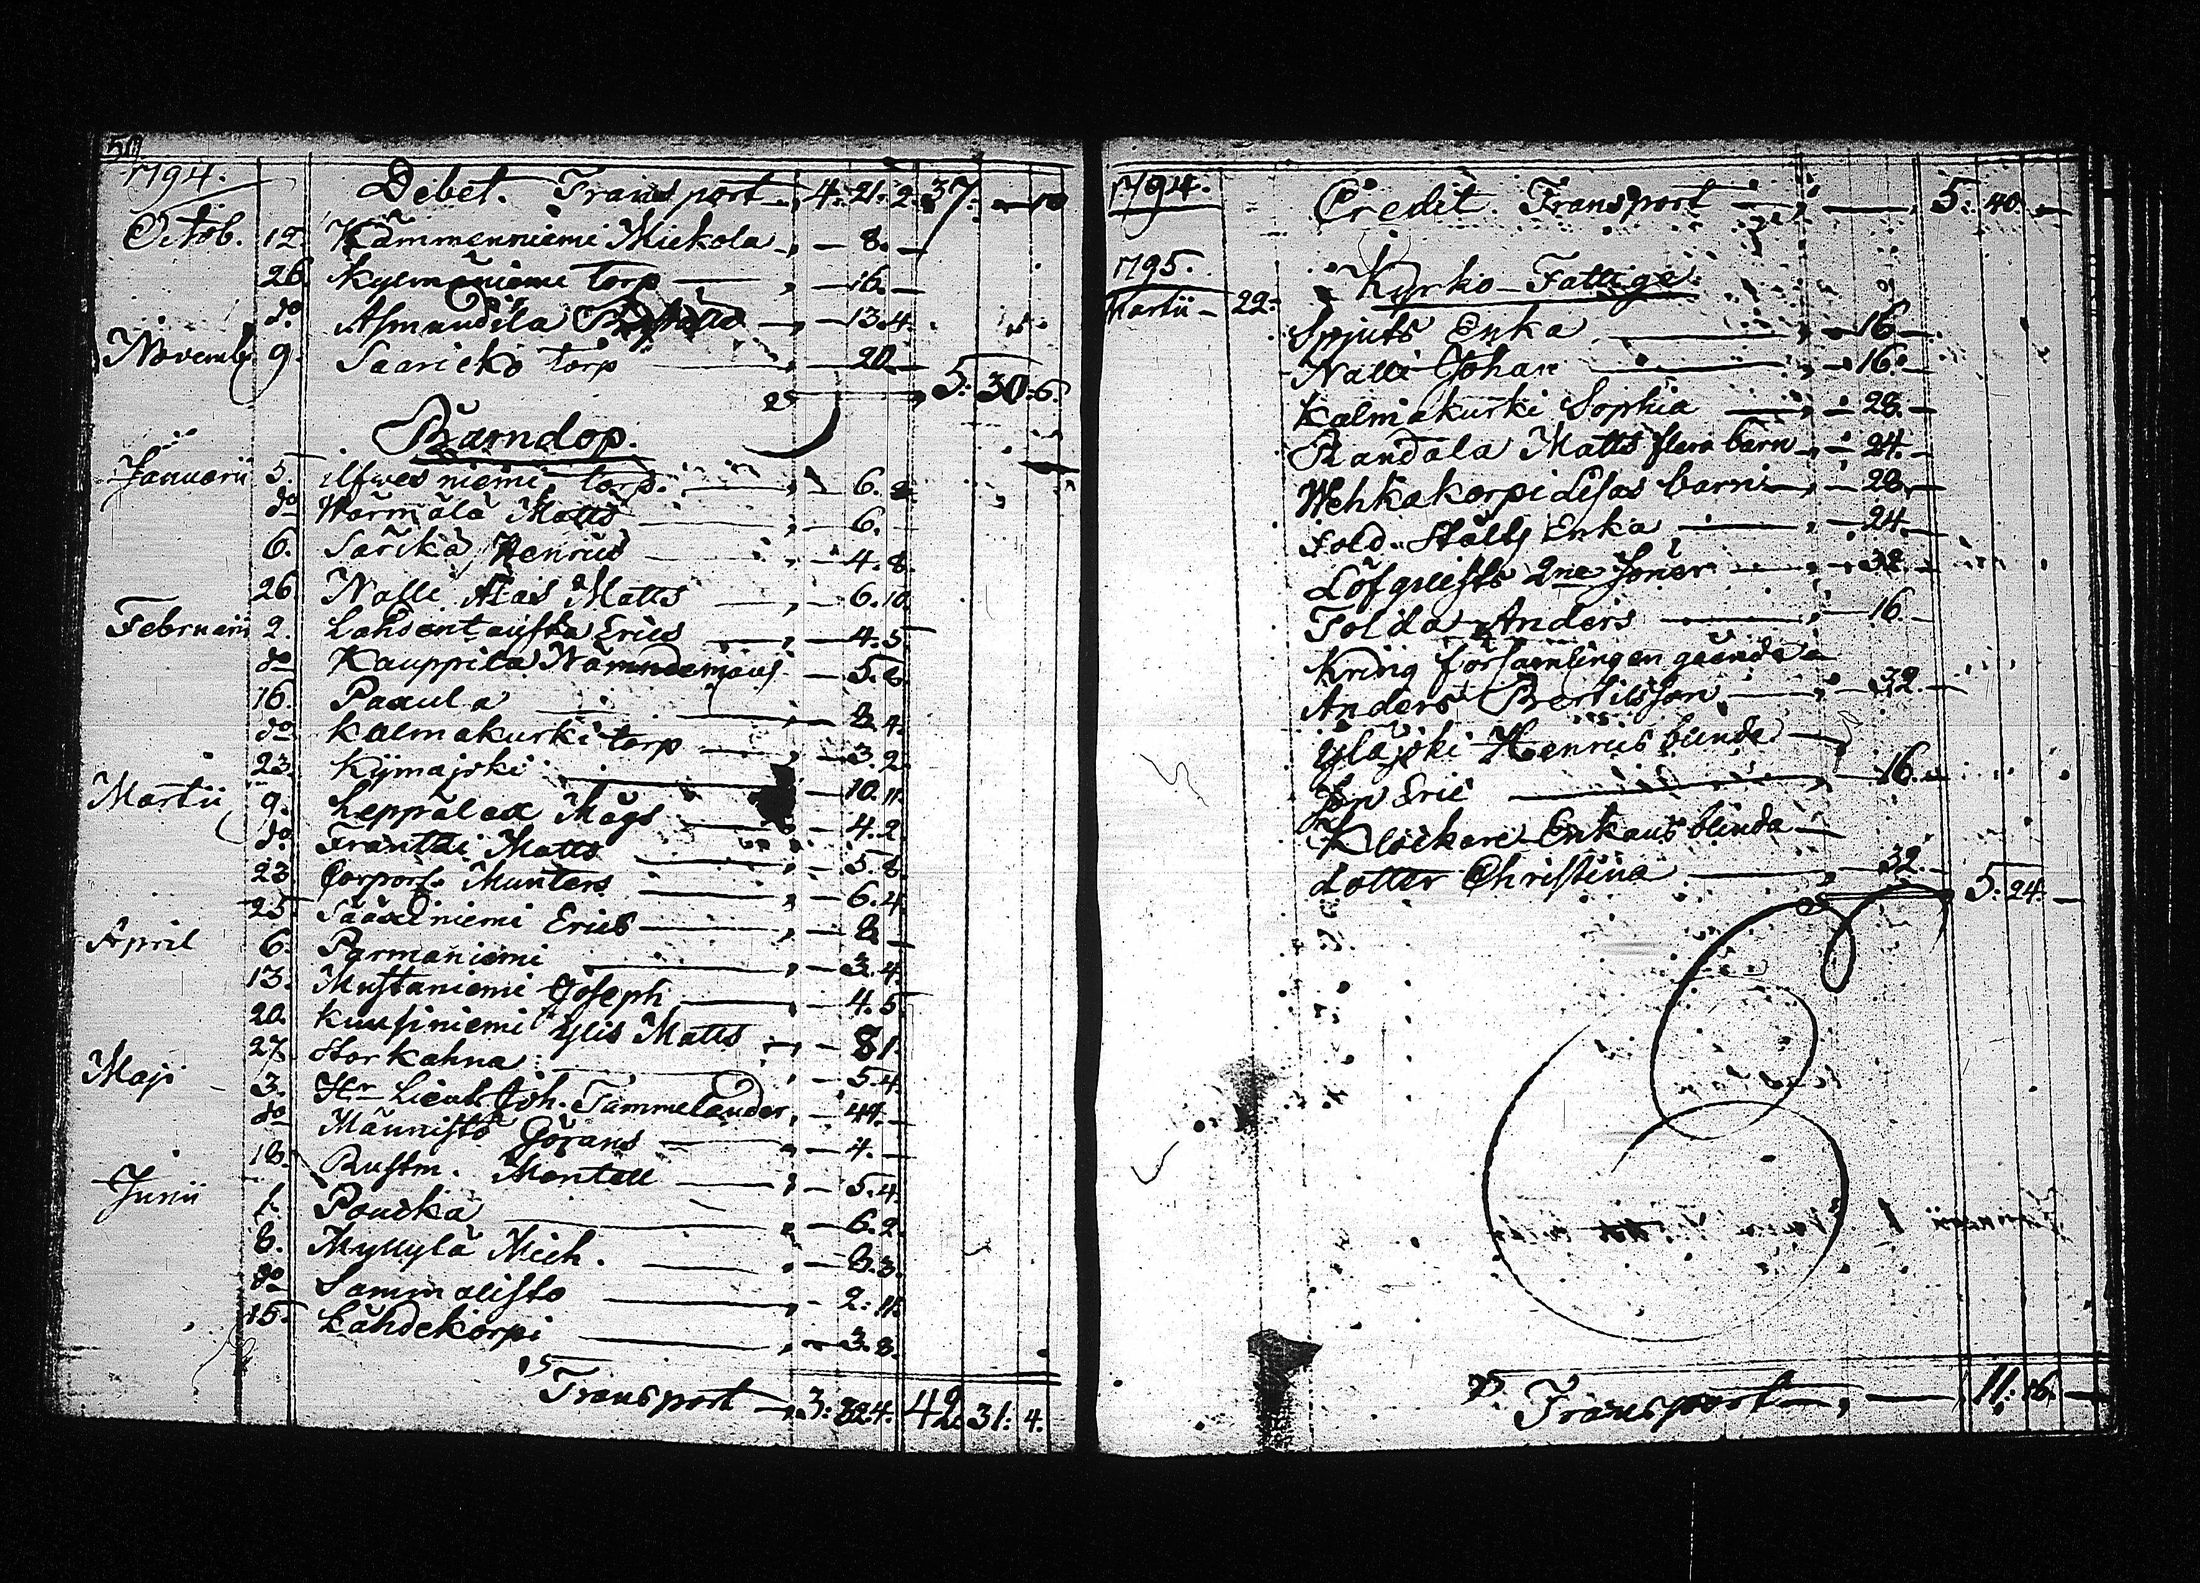 1794. Debet. Transport 4. 21. 2. 37. — 10
Octob. 12. Kämmenniemi Mickola — 8. —
26. Kylmäniemi torp — 16. —
do Asmundila — 13. 4.
Novemb. 9. Saarickö torp — 20. — 5. 30. 6.
Barndop.
Januarii 5. ilfwesniemi torp. — 6.
do Wärmälä Matts — 6. —
6. Särikä Henrics — 4. 8.
26. Nalle Matts — 6. 10.
Februarii 2. Lahdentausta Erics — 4. 5.
do Kauppila Nämndemans — 5. 8.
16. Paaula — 8. 4.
do Kalmakurki torp — 3. 2.
23. Kijmajoki — 10. 11.
Martii 9. Leppälax Mågs — 4. 2.
do Franttei Matts — 5. 8.
23. Corpor. Munters — 6. 4.
25. Sääxiniemi Erics — 8. —
April 6. Parmaniemi — 3. 4.
13. Mustaniemi Joseph — 4. 5.
20. Kuusiniemi Ylis Matts — 8 1.
27. Storkahna — 5. 4.
Maji 3. Hr Lieut. Joh. Tammelander — 44. —
do Männistö Görans — 4. —
18. Rustm. Montell — 5. 4.
Junii 1. Poucka — 6. 2.
8. Myllylä Mich. — 8. 3.
do Sammalisto — 2. 11.
15. Lähdekorpi — 3. 8.
Transport 3: 32. 4. 42 31: 4.
1794. Credit. Transport — 5. 40. —
1795. Kyrko-Fattige.
Martii — 22. Spjuts Enka — 16. —
Nalli Johan — 16. —
Kalmakurki Sophia — 28. —
Randala Matts flera barn — 24. —
Wehkakorpi Lisas barn — 28. —
Sold. Stålts Enka — 24. —
Löfquists 2ne Söner — 32. —
Tolda Anders — 16. —
Kring församlingen gående
Anders Bertilsson — 32. —
Yläjoki Henrics blinda
Son Eric — 16. —
Klockare Enkans blinda
dotter Christina — 32. — 5. 24. —
Transport — 11. 16. —